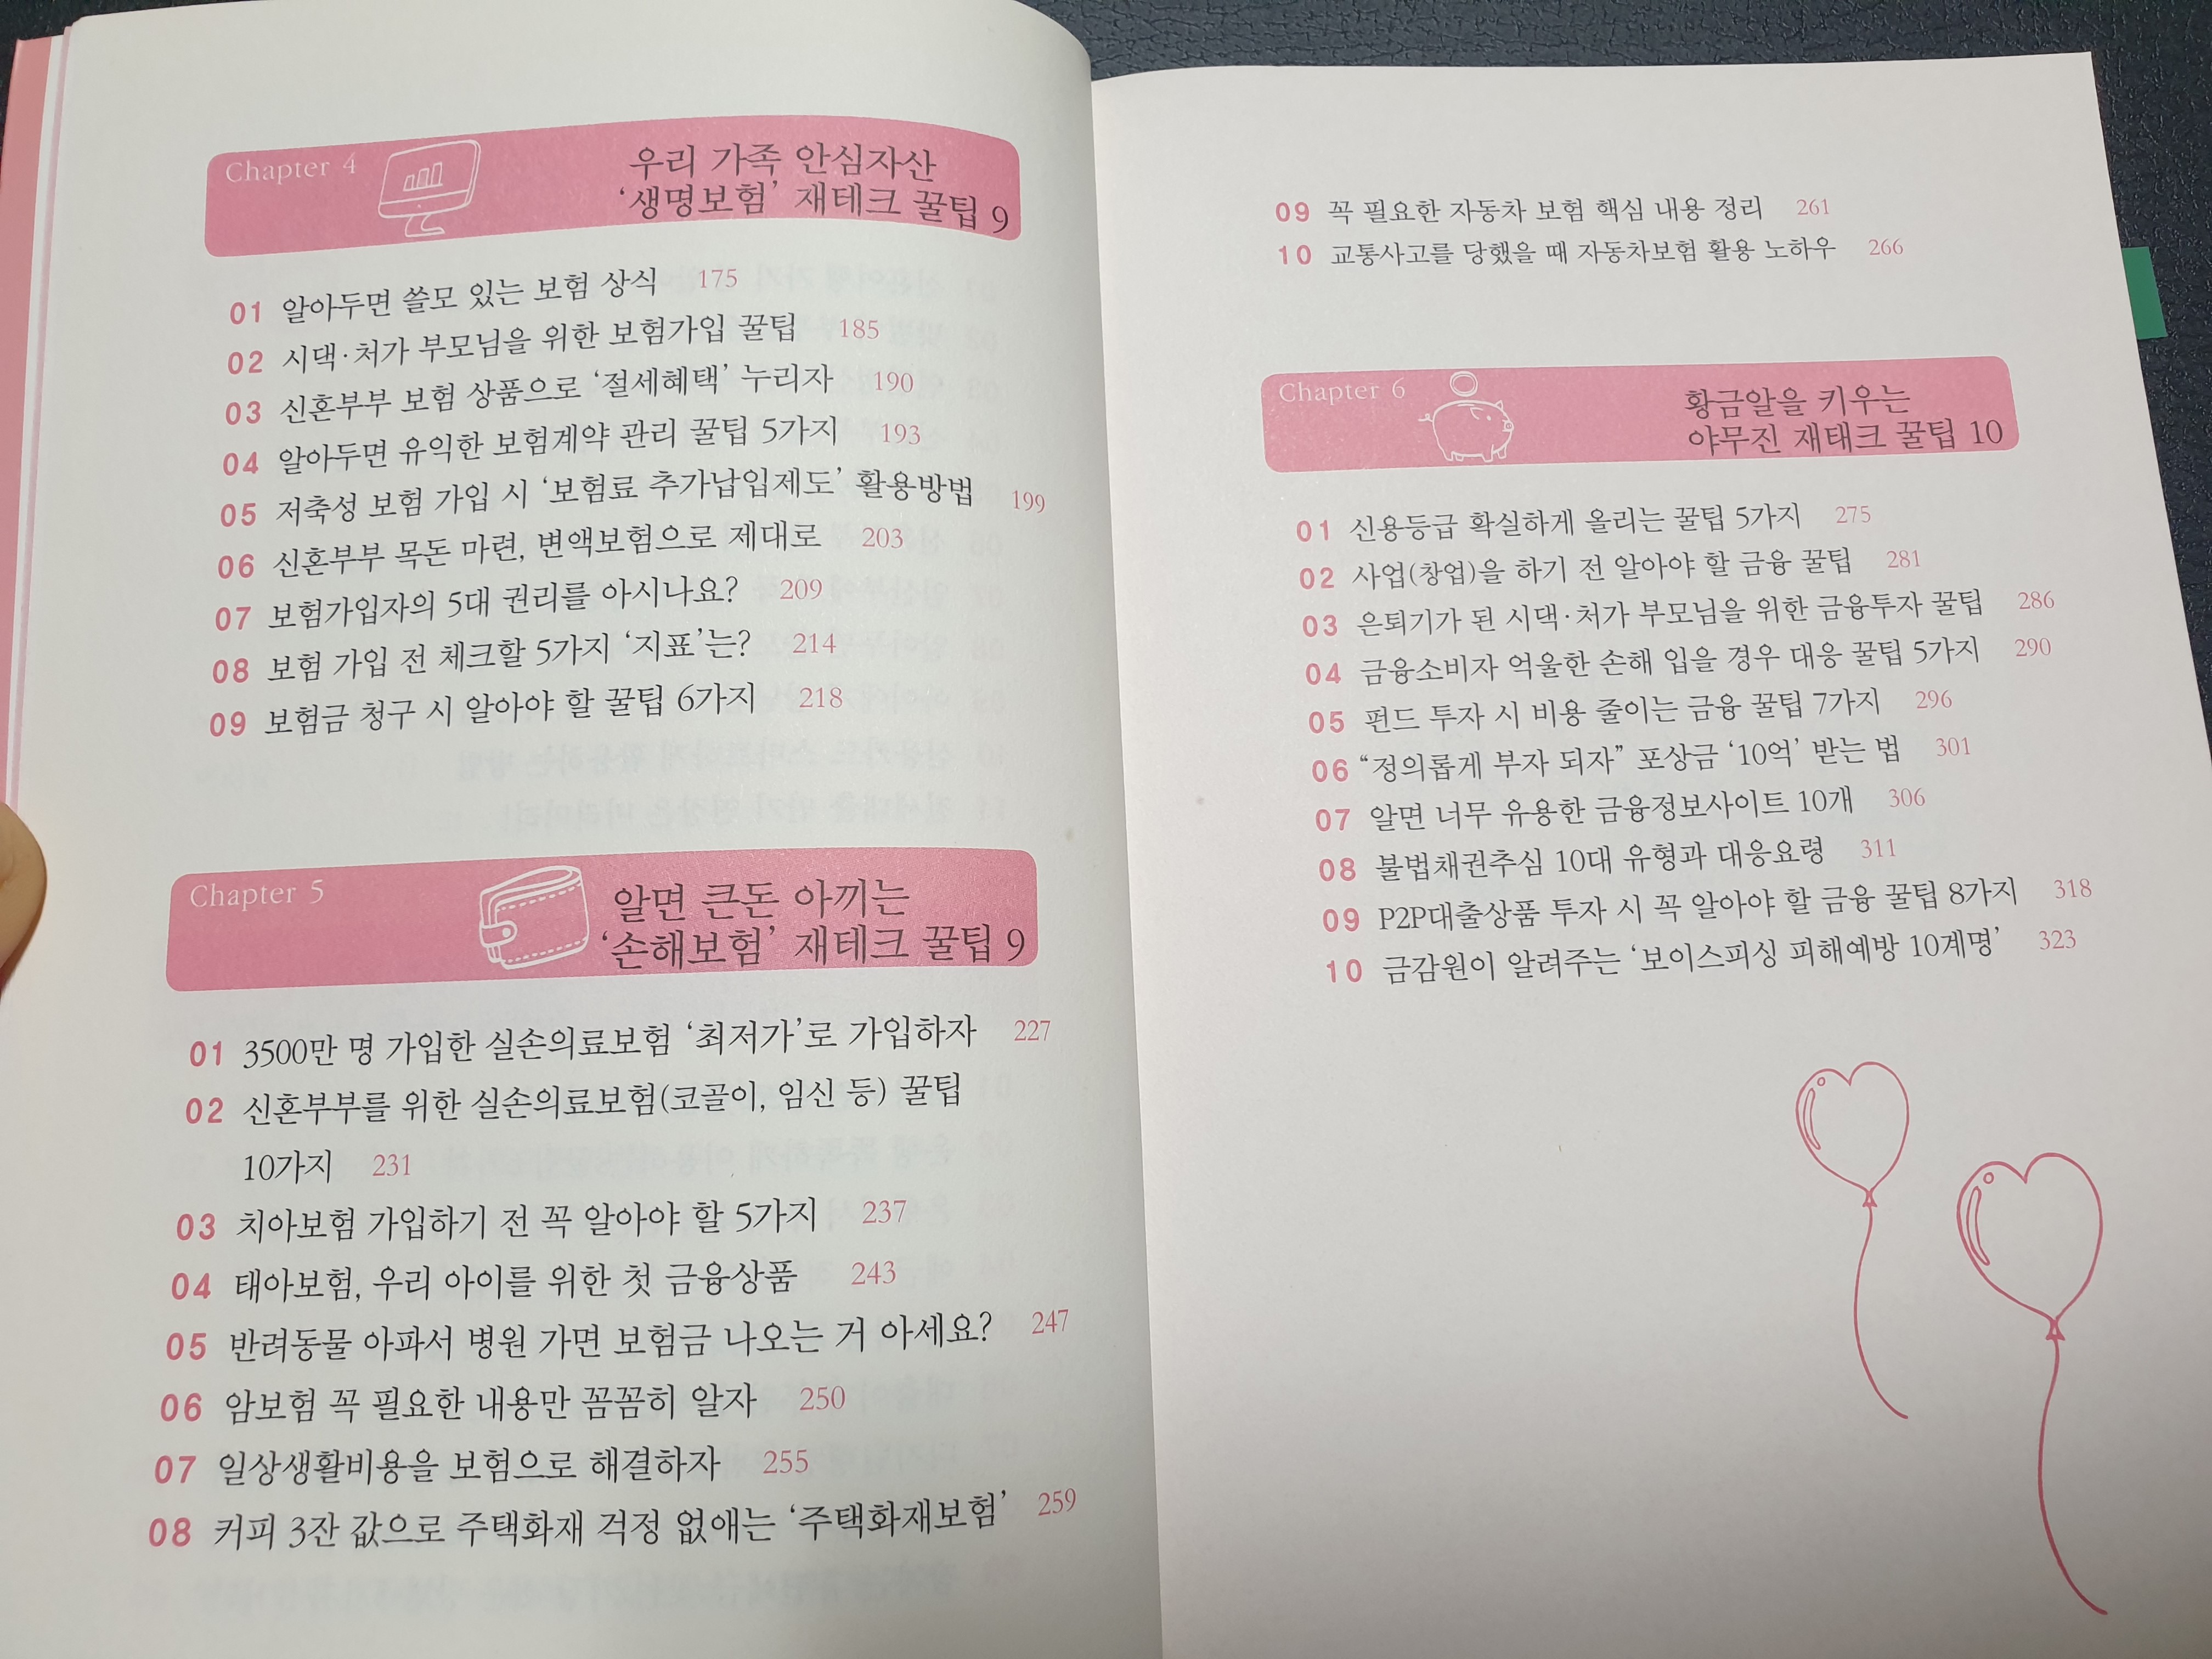 Chapter 4
우리 가족 안심자산
‘생명보험’ 재테크 꿀팁 9
01 알아두면 쓸모 있는 보험 상식 175
02 시댁·처가 부모님을 위한 보험가입 꿀팁 185
03 신혼부부 보험 상품으로 ‘절세혜택’ 누리자 190
04 알아두면 유익한 보험계약 관리 꿀팁 5가지 193
05 저축성 보험 가입 시 ‘보험료 추가납입제도’ 활용방법 199
06 신혼부부 목돈 마련, 변액보험으로 제대로 203
07 보험가입자의 5대 권리를 아시나요? 209
08 보험 가입 전 체크할 5가지 ‘지표’는? 214
09 보험금 청구 시 알아야 할 꿀팁 6가지 218
Chapter 5
알면 큰돈 아끼는
‘손해보험’ 재테크 꿀팁 9
01 3500만 명 가입한 실손의료보험 ‘최저가’로 가입하자 227
02 신혼부부를 위한 실손의료보험(코골이, 임신 등) 꿀팁
10가지 231
03 치아보험 가입하기 전 꼭 알아야 할 5가지 237
04 태아보험, 우리 아이를 위한 첫 금융상품 243
05 반려동물 아파서 병원 가면 보험금 나오는 거 아세요? 247
06 암보험 꼭 필요한 내용만 꼼꼼히 알자 250
07 일상생활비용을 보험으로 해결하자 255
08 커피 3잔 값으로 주택화재 걱정 없애는 ‘주택화재보험’ 259
09 꼭 필요한 자동차 보험 핵심 내용 정리 261
10 교통사고를 당했을 때 자동차보험 활용 노하우 266
Chapter 6
황금알을 키우는
야무진 재태크 꿀팁 10
01 신용등급 확실하게 올리는 꿀팁 5가지 275
02 사업(창업)을 하기 전 알아야 할 금융 꿀팁 281
03 은퇴기가 된 시댁·처가 부모님을 위한 금융투자 꿀팁 286
04 금융소비자 억울한 손해 입을 경우 대응 꿀팁 5가지 290
05 펀드 투자 시 비용 줄이는 금융 꿀팁 7가지 296
06 “정의롭게 부자 되자” 포상금 ‘10억’ 받는 법 301
07 알면 너무 유용한 금융정보사이트 10개 306
08 불법채권추심 10대 유형과 대응요령 311
09 P2P대출상품 투자 시 꼭 알아야 할 금융 꿀팁 8가지 318
10 금감원이 알려주는 ‘보이스피싱 피해예방 10계명’ 323